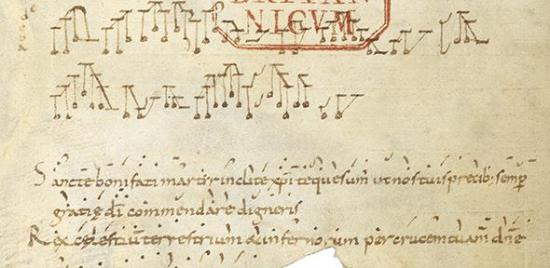 BRITAN
NICVM
Sancte bonifati martir inclite xpi te quesum ut nos tuis precib; semp
gratie di commendare digneris
Rex celestium terrestrium & infernorum per crucem tuam dne